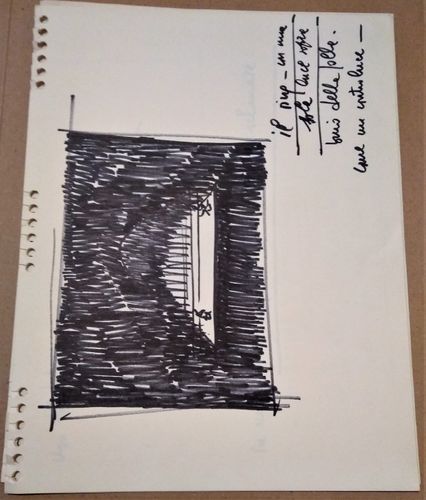 il ring – con una
sola luce sopra
buio della
come un controluce –